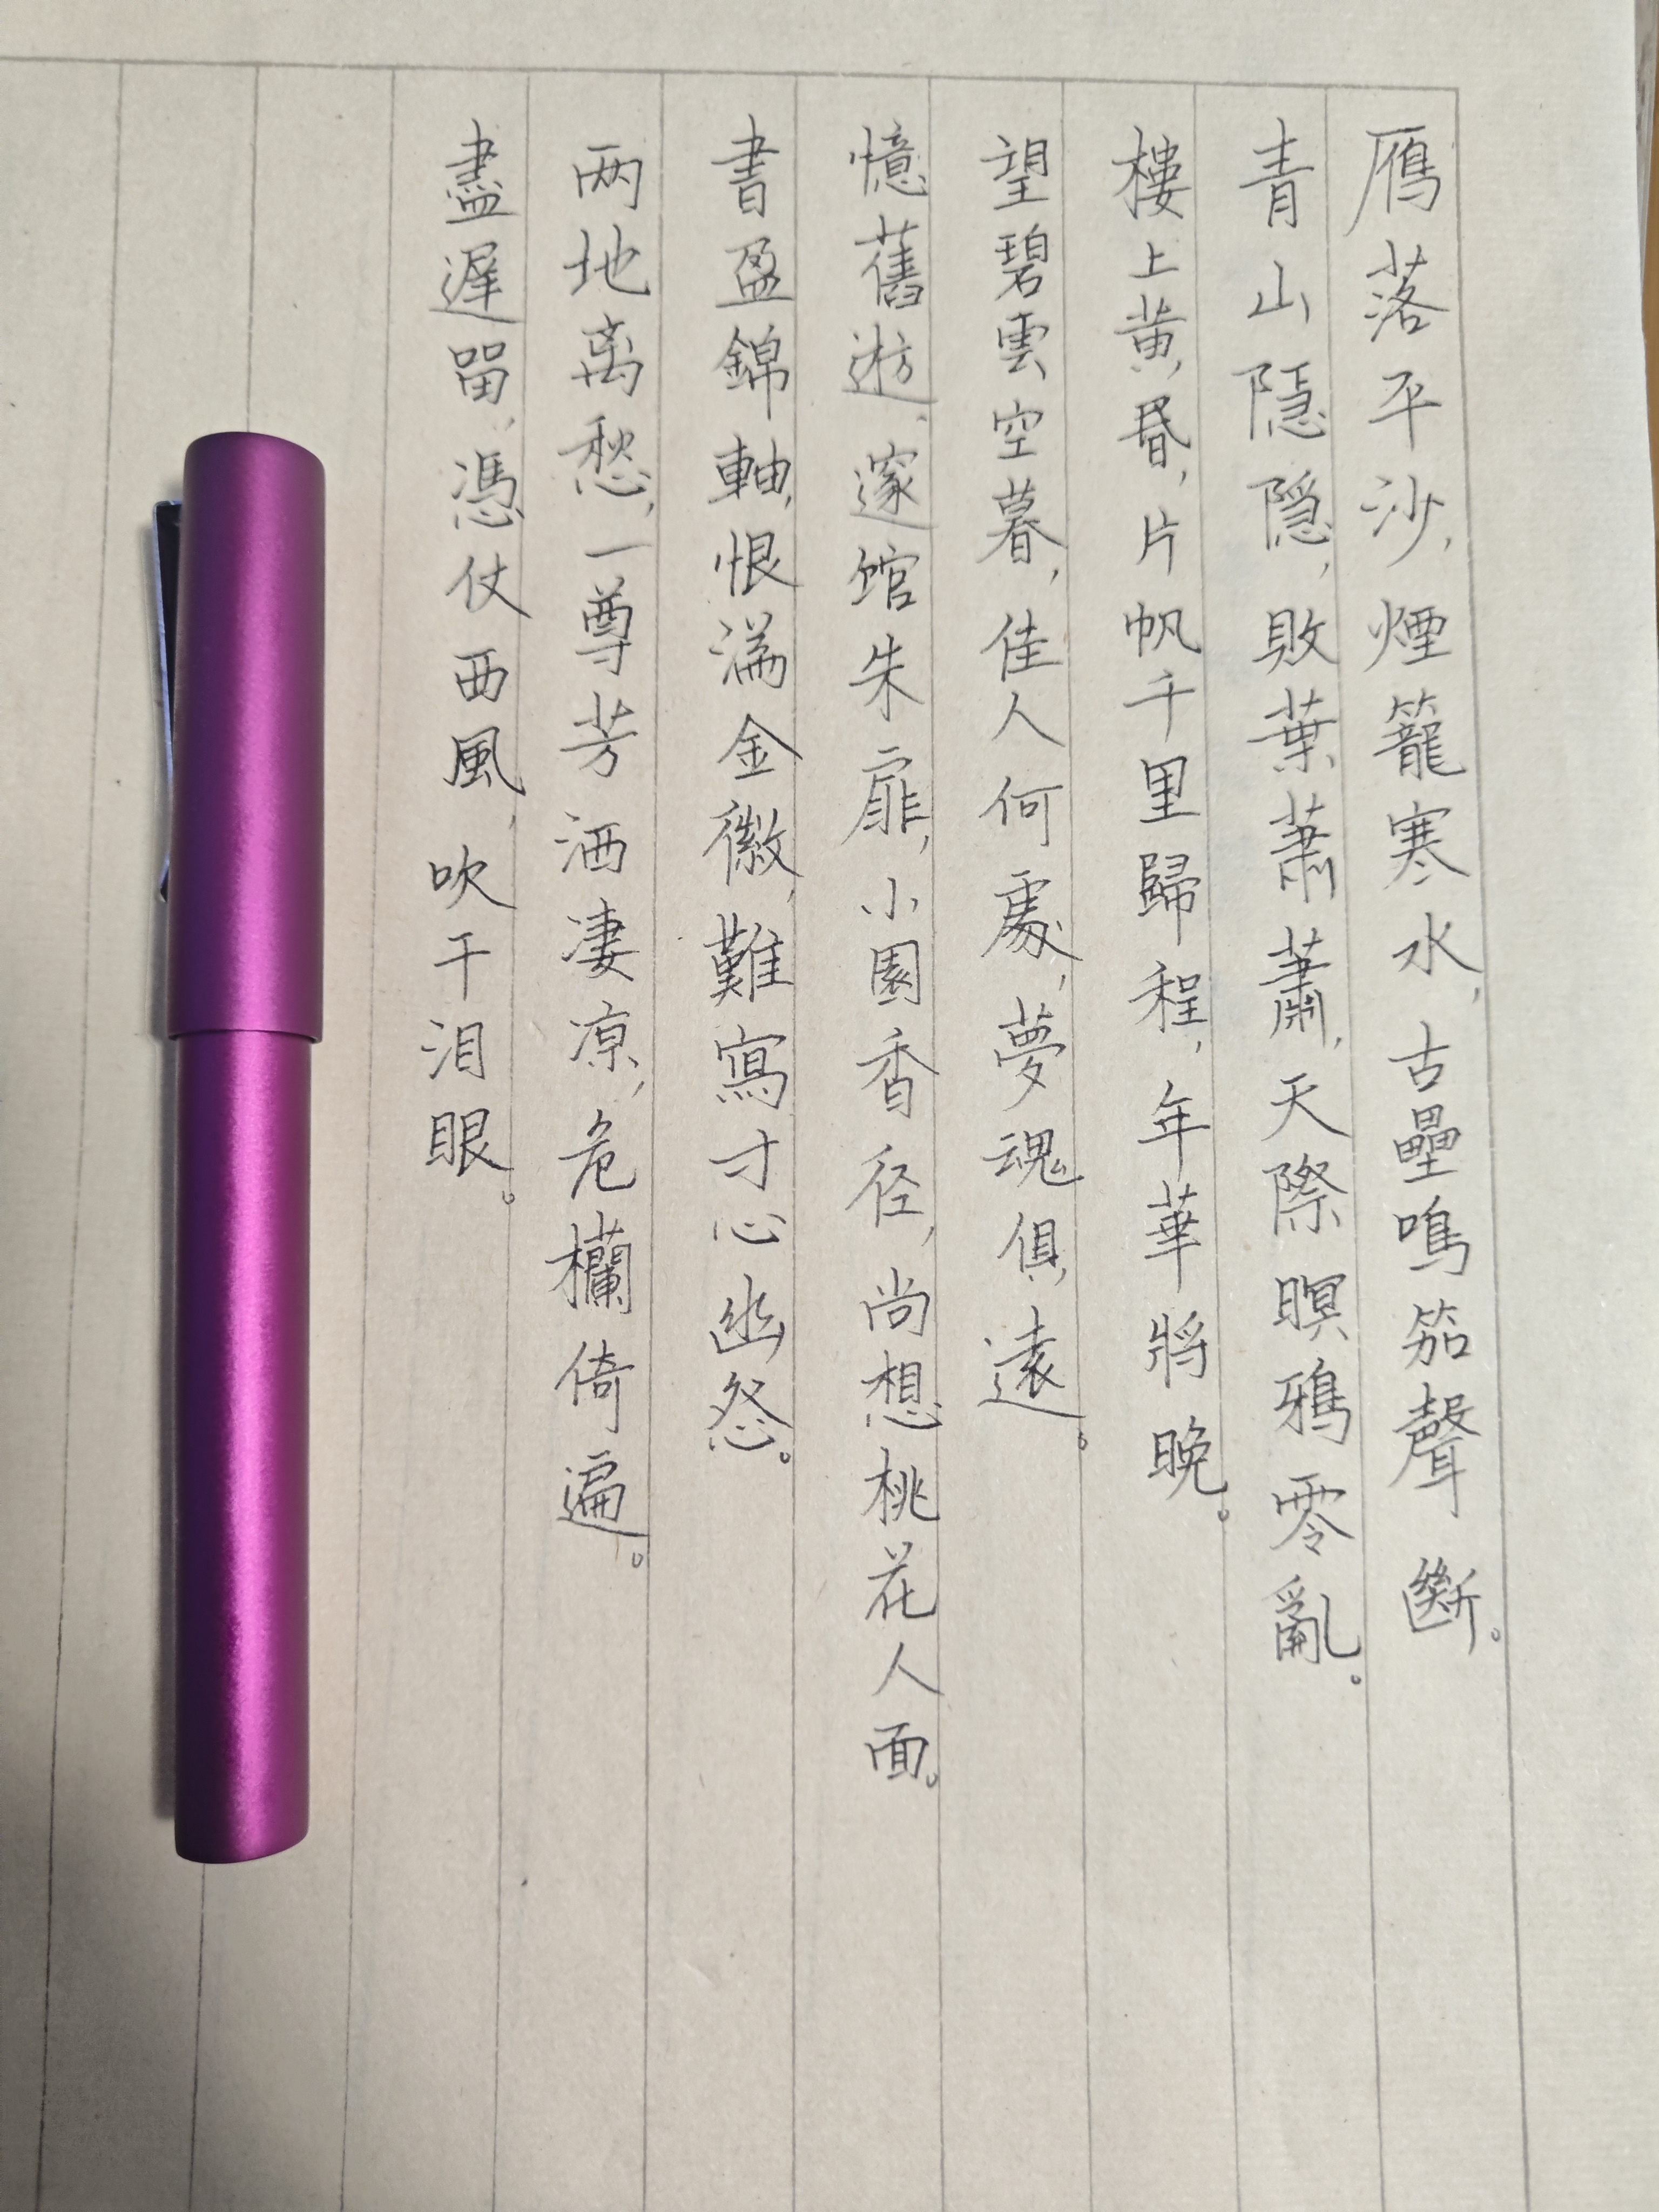 鴈落平沙，煙籠寒水，古壘鳴笳聲斷。
青山隱隱，敗葉蕭蕭，天際暝鴉零亂。
樓上黄昏，片帆千里歸程，年華將晚。
望碧雲空暮，佳人何處，夢魂俱遠。
憶舊遊、邃館朱扉，小園香径，尚想桃花人面。
書盈錦軸，恨滿金徽，難寫寸心幽怨。
两地离愁，一尊芳酒凄凉，危欄倚遍。
盡遲留，憑仗西風，吹干泪眼。